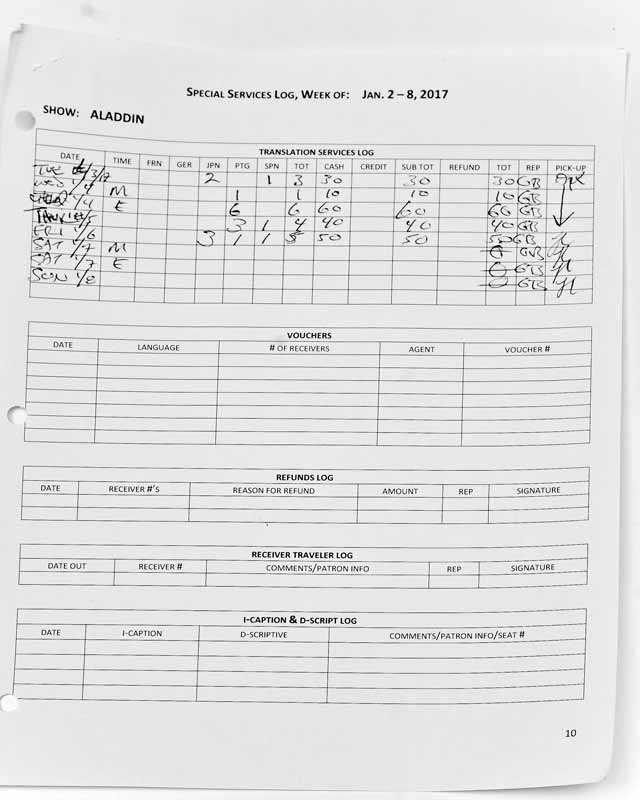 SPECIAL SERVICES LOG, WEEK OF: JAN. 2 – 8, 2017
SHOW: ALADDIN
TRANSLATION SERVICES LOG
DATE TIME FRN GER JPN PTG SPN TOT CASH CREDIT SUB TOT REFUND TOT REP PICK-UP
TUE 1/3/17 2 1 3 30 30 30 GB
WED 1/4 M 1 1 10 10 10 GB
1/4 E 6 6 60 60 60 GB
THUR 1/5 3 1 4 40 40 40 GB
FRI 1/6 3 1 1 5 50 50 50 GB
SAT 1/7 M 0 GB
SAT 1/7 E 0 GB
SUN 1/8 0 GB
VOUCHERS
DATE LANGUAGE # OF RECEIVERS AGENT VOUCHER #
REFUNDS LOG
DATE RECEIVER #'S REASON FOR REFUND AMOUNT REP SIGNATURE
RECEIVER TRAVELER LOG
DATE OUT RECEIVER # COMMENTS/PATRON INFO REP SIGNATURE
I-CAPTION & D-SCRIPT LOG
DATE I-CAPTION D-SCRIPTIVE COMMENTS/PATRON INFO/SEAT #
10